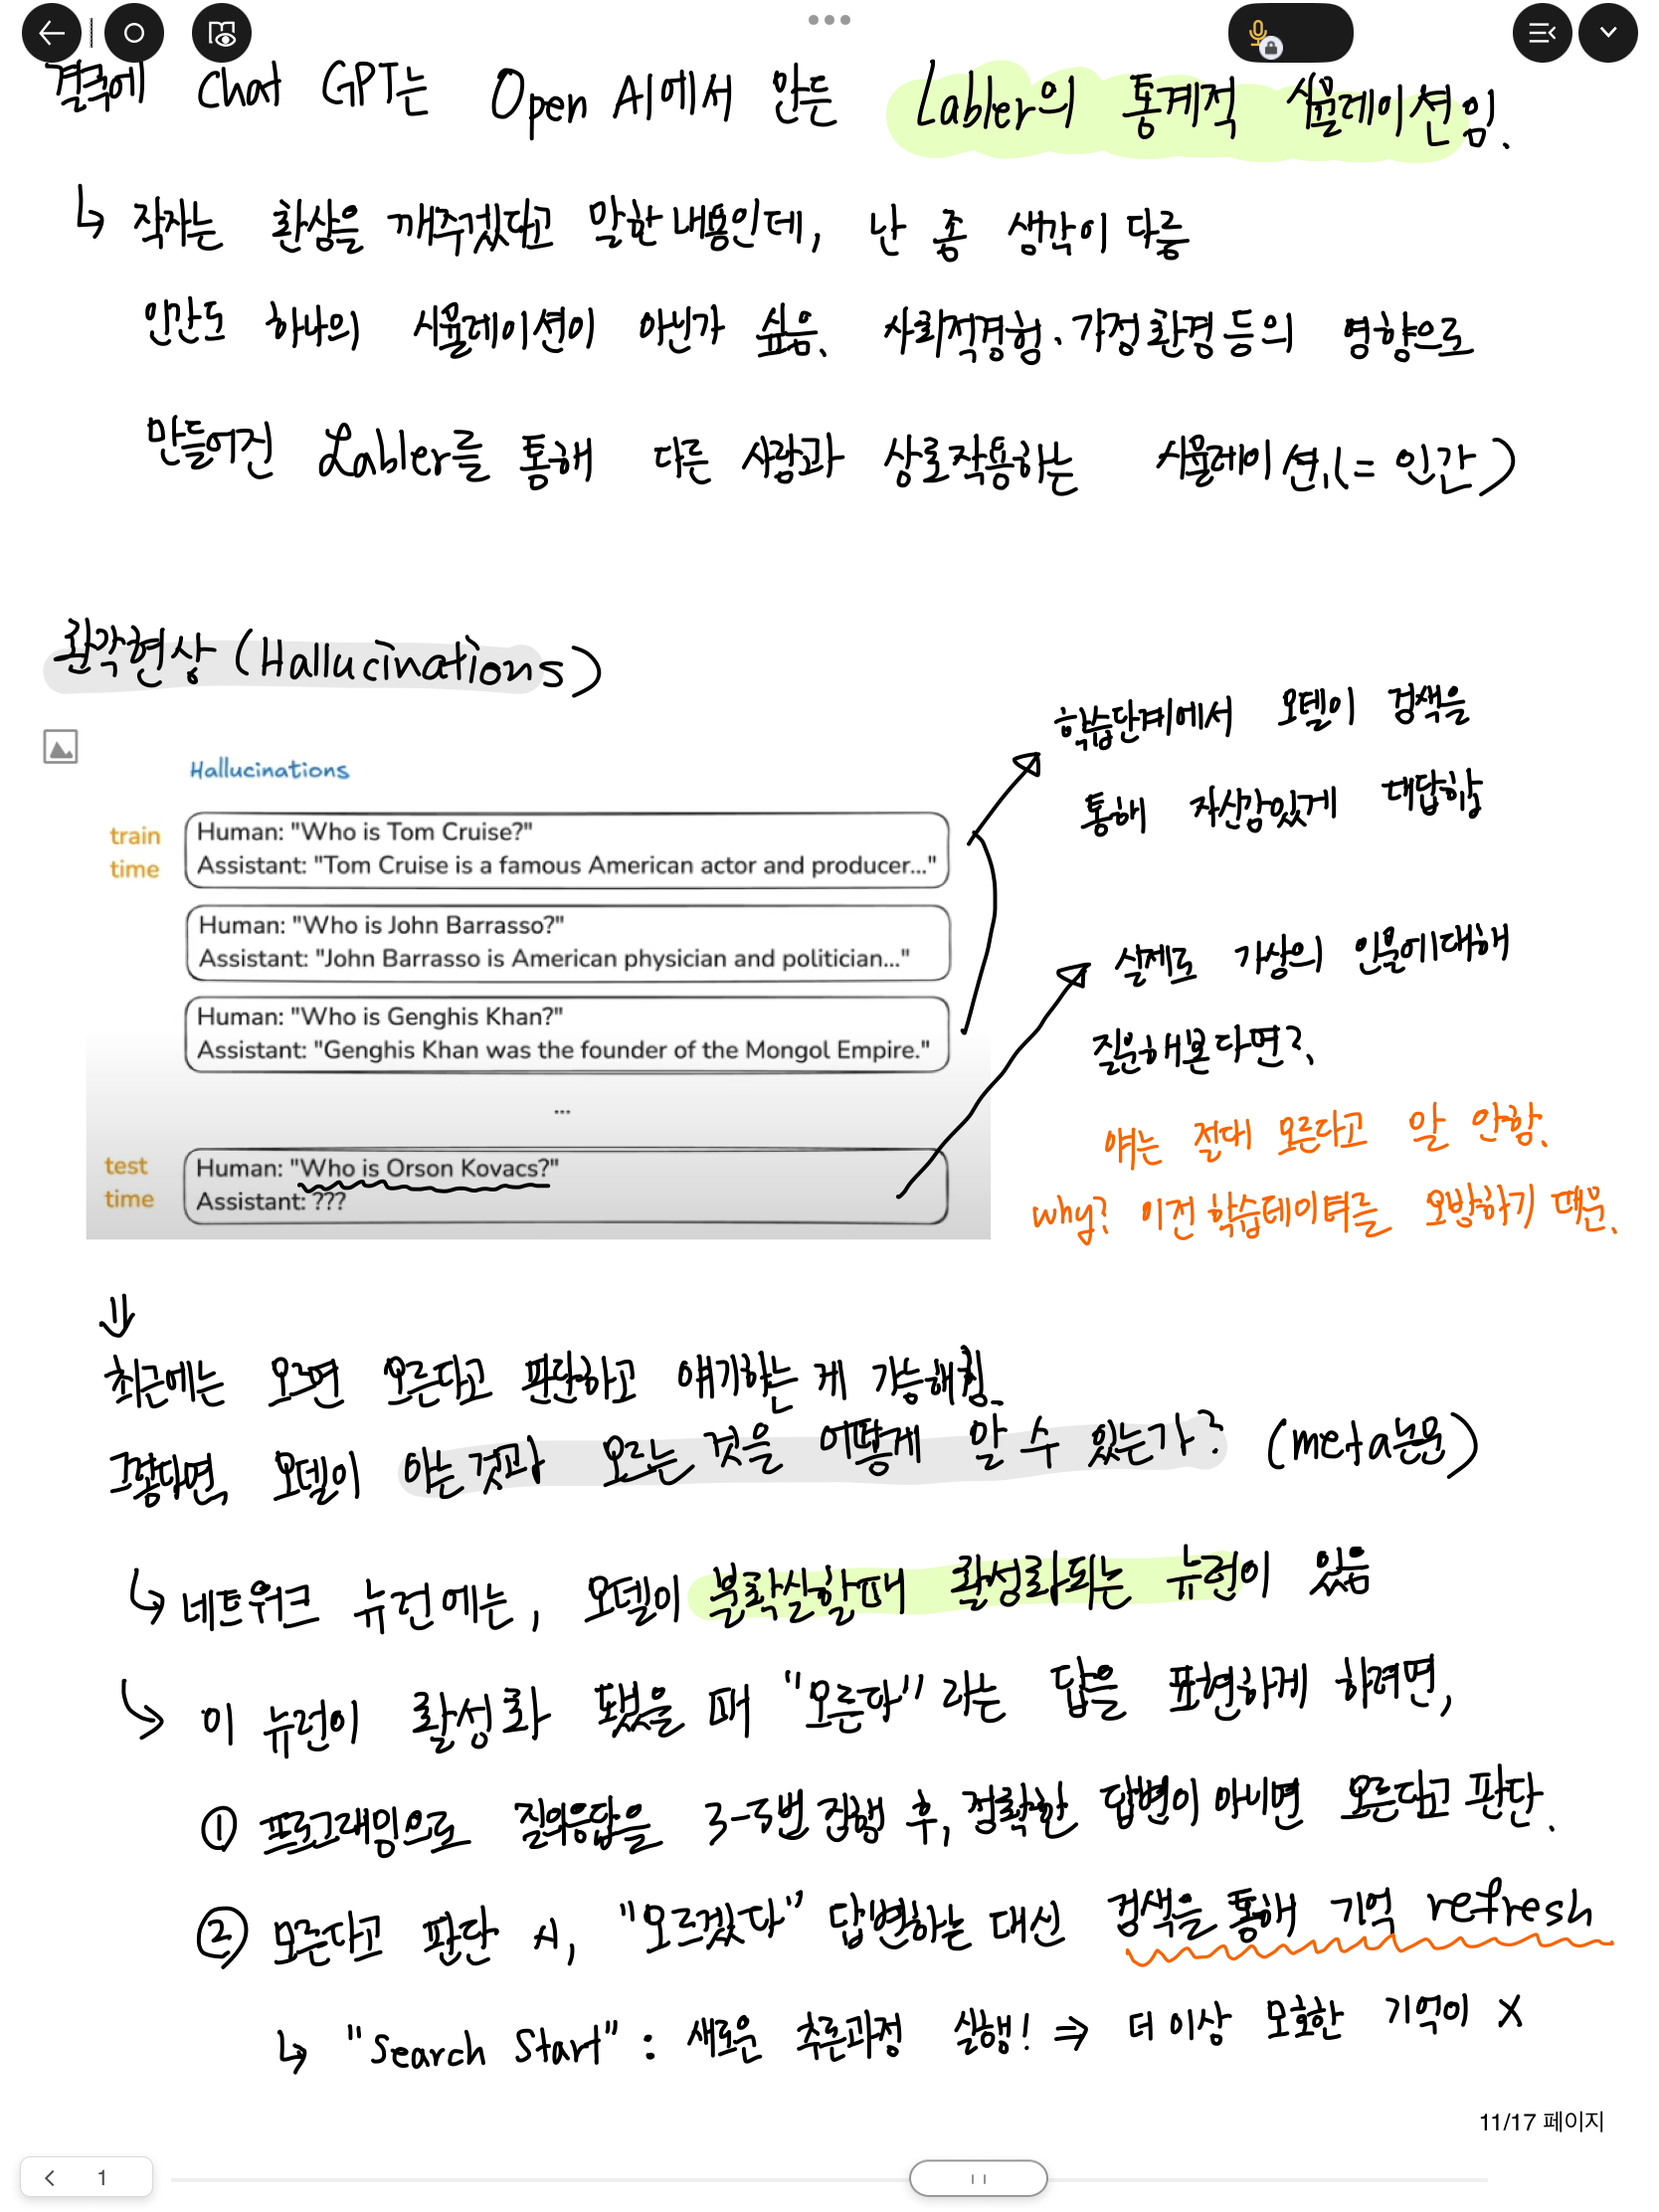 결국에 Chat GPT는 Open AI에서 만든 Labler의 통계적 시뮬레이션임.
↳ 작자는 환상을 깨주겠다고 말한 내용인데, 난 좀 생각이 다름
인간도 하나의 시뮬레이션이 아닌가 싶음. 사회적경험·가정환경 등의 영향으로
만들어진 Labler를 통해 다른 사람과 상호작용하는 시뮬레이션.(= 인간)
환각현상 (Hallucinations)
Hallucinations
train
time
Human: "Who is Tom Cruise?"
Assistant: "Tom Cruise is a famous American actor and producer..."
Human: "Who is John Barrasso?"
Assistant: "John Barrasso is American physician and politician..."
Human: "Who is Genghis Khan?"
Assistant: "Genghis Khan was the founder of the Mongol Empire."
...
test
time
Human: "Who is Orson Kovacs?"
Assistant: ???
학습단계에서 모델이 검색을
통해 자신감있게 대답함
실제로 가상의 인물에 대해
질문해본다면?
얘는 절대 모른다고 말 안함.
why? 이전 학습데이터를 모방하기 때문.
⇓
최근에는 모르면 모른다고 판단하고 얘기하는 게 가능해짐.
그렇다면, 모델이 아는것과 모르는 것을 어떻게 알 수 있는가? (meta논문)
↳ 네트워크 뉴런에는, 모델이 불확실할때 활성화되는 뉴런이 있음
↳ 이 뉴런이 활성화 됐을 때 "모른다" 라는 답을 표현하게 하려면,
① 프로그래밍으로 질의응답을 3-5번 진행 후, 정확한 답변이 아니면 모른다고 판단.
② 모른다고 판단 시, "모르겠다" 답변하는 대신 검색을 통해 기억 refresh
↳ "Search Start" : 새로운 추론과정 실행! ⇒ 더 이상 모호한 기억이 X
11/17 페이지
1